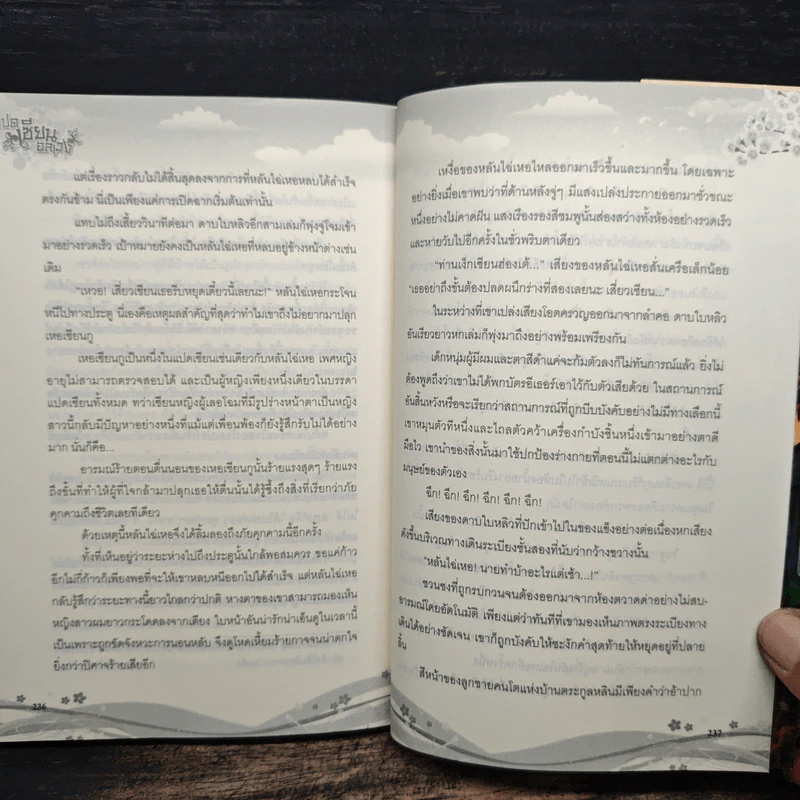 แปด
เซียน
อลเวง
แต่เรื่องราวกลับไม่ได้สิ้นสุดลงจากการที่หลันไฉ่เหอหลบได้สำเร็จ
ตรงกันข้าม นี่เป็นเพียงแค่การเปิดฉากเริ่มต้นเท่านั้น
แทบไม่ถึงเสี้ยววินาทีต่อมา ดาบใบหลิวอีกสามเล่มก็พุ่งจู่โจมเข้า
มาอย่างรวดเร็ว เป้าหมายยังคงเป็นหลันไฉ่เหอที่หลบอยู่ข้างหน้าต่างเช่น
เดิม
"เหวอ! เสี่ยวเซียนเธอรีบหยุดเดี๋ยวนี้เลยนะ!" หลันไฉ่เหอกระโจน
หนีไปทางประตู นี่เองคือเหตุผลสำคัญที่สุดว่าทำไมเขาถึงไม่อยากมาปลุก
เหอเซียนกู
เหอเซียนกูเป็นหนึ่งในแปดเซียนเช่นเดียวกับหลันไฉ่เหอ เพศหญิง
อายุไม่สามารถตรวจสอบได้ และเป็นผู้หญิงเพียงหนึ่งเดียวในบรรดา
แปดเซียนทั้งหมด ทว่าเซียนหญิงผู้เลอโฉมที่มีรูปร่างหน้าตาเป็นหญิง
สาวนี้กลับมีปัญหาอย่างหนึ่งที่แม้แต่เพื่อนพ้องก็ยังรู้สึกรับไม่ได้อย่าง
มาก นั่นก็คือ...
อารมณ์ร้ายตอนตื่นนอนของเหอเซียนกูนั้นร้ายแรงสุดๆ ร้ายแรง
ถึงขั้นที่ทำให้ผู้ที่ใจกล้ามาปลุกเธอให้ตื่นนั้นได้รู้ซึ้งถึงสิ่งที่เรียกว่าภัย
คุกคามถึงชีวิตเลยทีเดียว
ด้วยเหตุนี้หลันไฉ่เหอจึงได้ลิ้มลองถึงภัยคุกคามนี้อีกครั้ง
ทั้งที่เห็นอยู่ว่าระยะห่างไปถึงประตูนั้นใกล้พอสมควร ขอแค่ก้าว
อีกไม่กี่ก้าวก็เพียงพอที่จะให้เขาหลบหนีออกไปได้สำเร็จ แต่หลันไฉ่เหอ
กลับรู้สึกว่าระยะทางนี้ยาวไกลกว่าปกติ หางตาของเขาสามารถมองเห็น
หญิงสาวผมยาวกระโดดลงจากเตียง ใบหน้าอันน่ารักน่าเอ็นดูในเวลานี้
เป็นเพราะถูกขัดจังหวะการนอนหลับ จึงดูโหดเหี้ยมร้ายกาจจนน่าตกใจ
ยิ่งกว่าปีศาจร้ายเสียอีก
236
เหงื่อของหลันไฉ่เหอไหลออกมาเร็วขึ้นและมากขึ้น โดยเฉพาะ
อย่างยิ่งเมื่อเขาพบว่าที่ด้านหลังจู่ๆ มีแสงเปล่งประกายออกมาชั่วขณะ
หนึ่งอย่างไม่คาดฝัน แสงเรืองรองสีชมพูนั้นส่องสว่างทั้งห้องอย่างรวดเร็ว
และหายวับไปอีกครั้งในชั่วพริบตาเดียว
"ท่านเง็กเซียนฮ่องเต้..." เสียงของหลันไฉ่เหอสั่นเครือเล็กน้อย
"เธออย่าถึงขั้นต้องปลดผนึกร่างที่สองเลยนะ เสี่ยวเซียน..."
ในระหว่างที่เขาเปล่งเสียงโอดครวญออกมาจากลำคอ ดาบใบหลิว
อันเรียวยาวหกเล่มก็พุ่งมาถึงอย่างพร้อมเพรียงกัน
เด็กหนุ่มผู้มีผมและตาสีดำแค่จะก้มตัวลงก็ไม่ทันการณ์แล้ว ยิ่งไม่
ต้องพูดถึงว่าเขาไม่ได้พกบัตรอีเธอร์เอาไว้กับตัวเสียด้วย ในสถานการณ์
อันสิ้นหวังหรือจะเรียกว่าสถานการณ์ที่ถูกบีบบังคับอย่างไม่มีทางเลือกนี้
เขาหมุนตัวทีหนึ่งและไถลตัวคว้าเครื่องกำบังชิ้นหนึ่งเข้ามาอย่างตาดี
มือไว เขานำของสิ่งนั้นมาใช้ปกป้องร่างกายที่ตอนนี้ไม่แตกต่างอะไรกับ
มนุษย์ของตัวเอง
ฉึก! ฉึก! ฉึก! ฉึก! ฉึก! ฉึก!
เสียงของดาบใบหลิวที่ปักเข้าไปในของแข็งอย่างต่อเนื่องหกเสียง
ดังขึ้นบริเวณทางเดินระเบียงชั้นสองที่นับว่ากว้างขวางนั้น
"หลันไฉ่เหอ! นายทำบ้าอะไรแต่เช้า...!"
ชวนชงที่ถูกรบกวนจนต้องออกมาจากห้องตวาดด่าอย่างไม่สบ-
อารมณ์โดยอัตโนมัติ เพียงแต่ว่าทันทีที่เขามองเห็นภาพตรงระเบียงทาง
เดินได้อย่างชัดเจน เขาก็ถูกบังคับให้ชะงักคำสุดท้ายให้หยุดอยู่ที่ปลาย
ลิ้น
สีหน้าของลูกชายคนโตแห่งบ้านตระกูลหลินมีเพียงคำว่าอ้าปาก
237